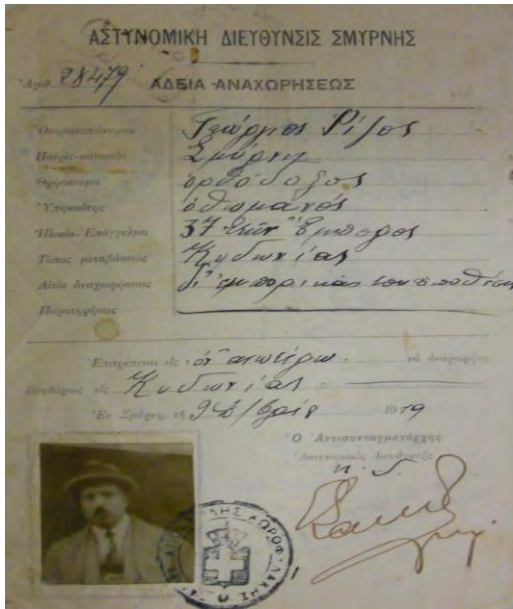 ΑΣΤΥΝΟΜΙΚΗ ΔΙΕΥΘΥΝΣΙΣ ΣΜΥΡΝΗΣ
Ἀριθ. 28479 ΑΔΕΙΑ ΑΝΑΧΩΡΗΣΕΩΣ
Ὀνοματεπώνυμον Γεώργιος Ρίζος
Πατρὶς-κατοικία Σμύρνη
Θρήσκευμα ὀρθόδοξος
Ὑπηκοότης ὀθωμανός
Ἡλικία-Ἐπάγγελμα 37 ἐτῶν Ἔμπορος
Τόπος μεταβάσεως Κυδωνίας
Αἰτία ἀναχωρήσεως δι' ἐμπορικάς του ὑποθέσεις
Παρατηρήσεις
Ἐπιτρέπεται εἰς τὸν ἀνωτέρω νὰ ἀναχωρήσῃ
ἐλευθέρως εἰς Κυδωνίας
Ἐν Σμύρνῃ, τῇ 9 1919
Ὁ Ἀντισυνταγματάρχης
Ἀστυνομικὸς Διευθυντής